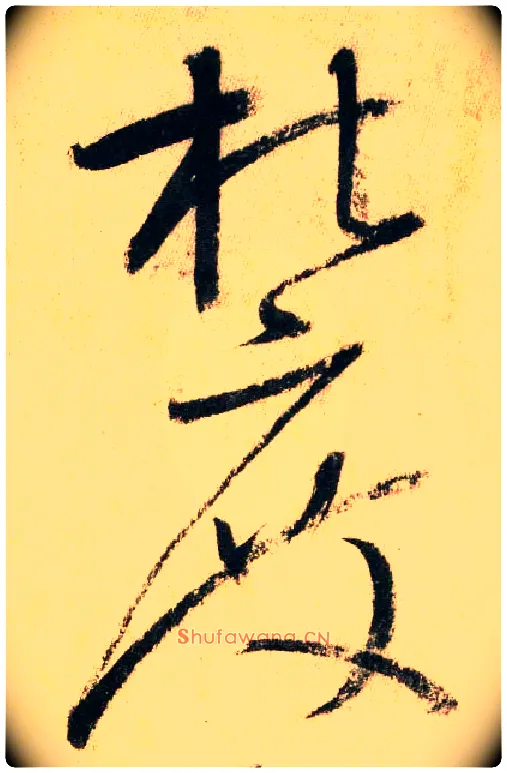 杜度
Shufawang.CN